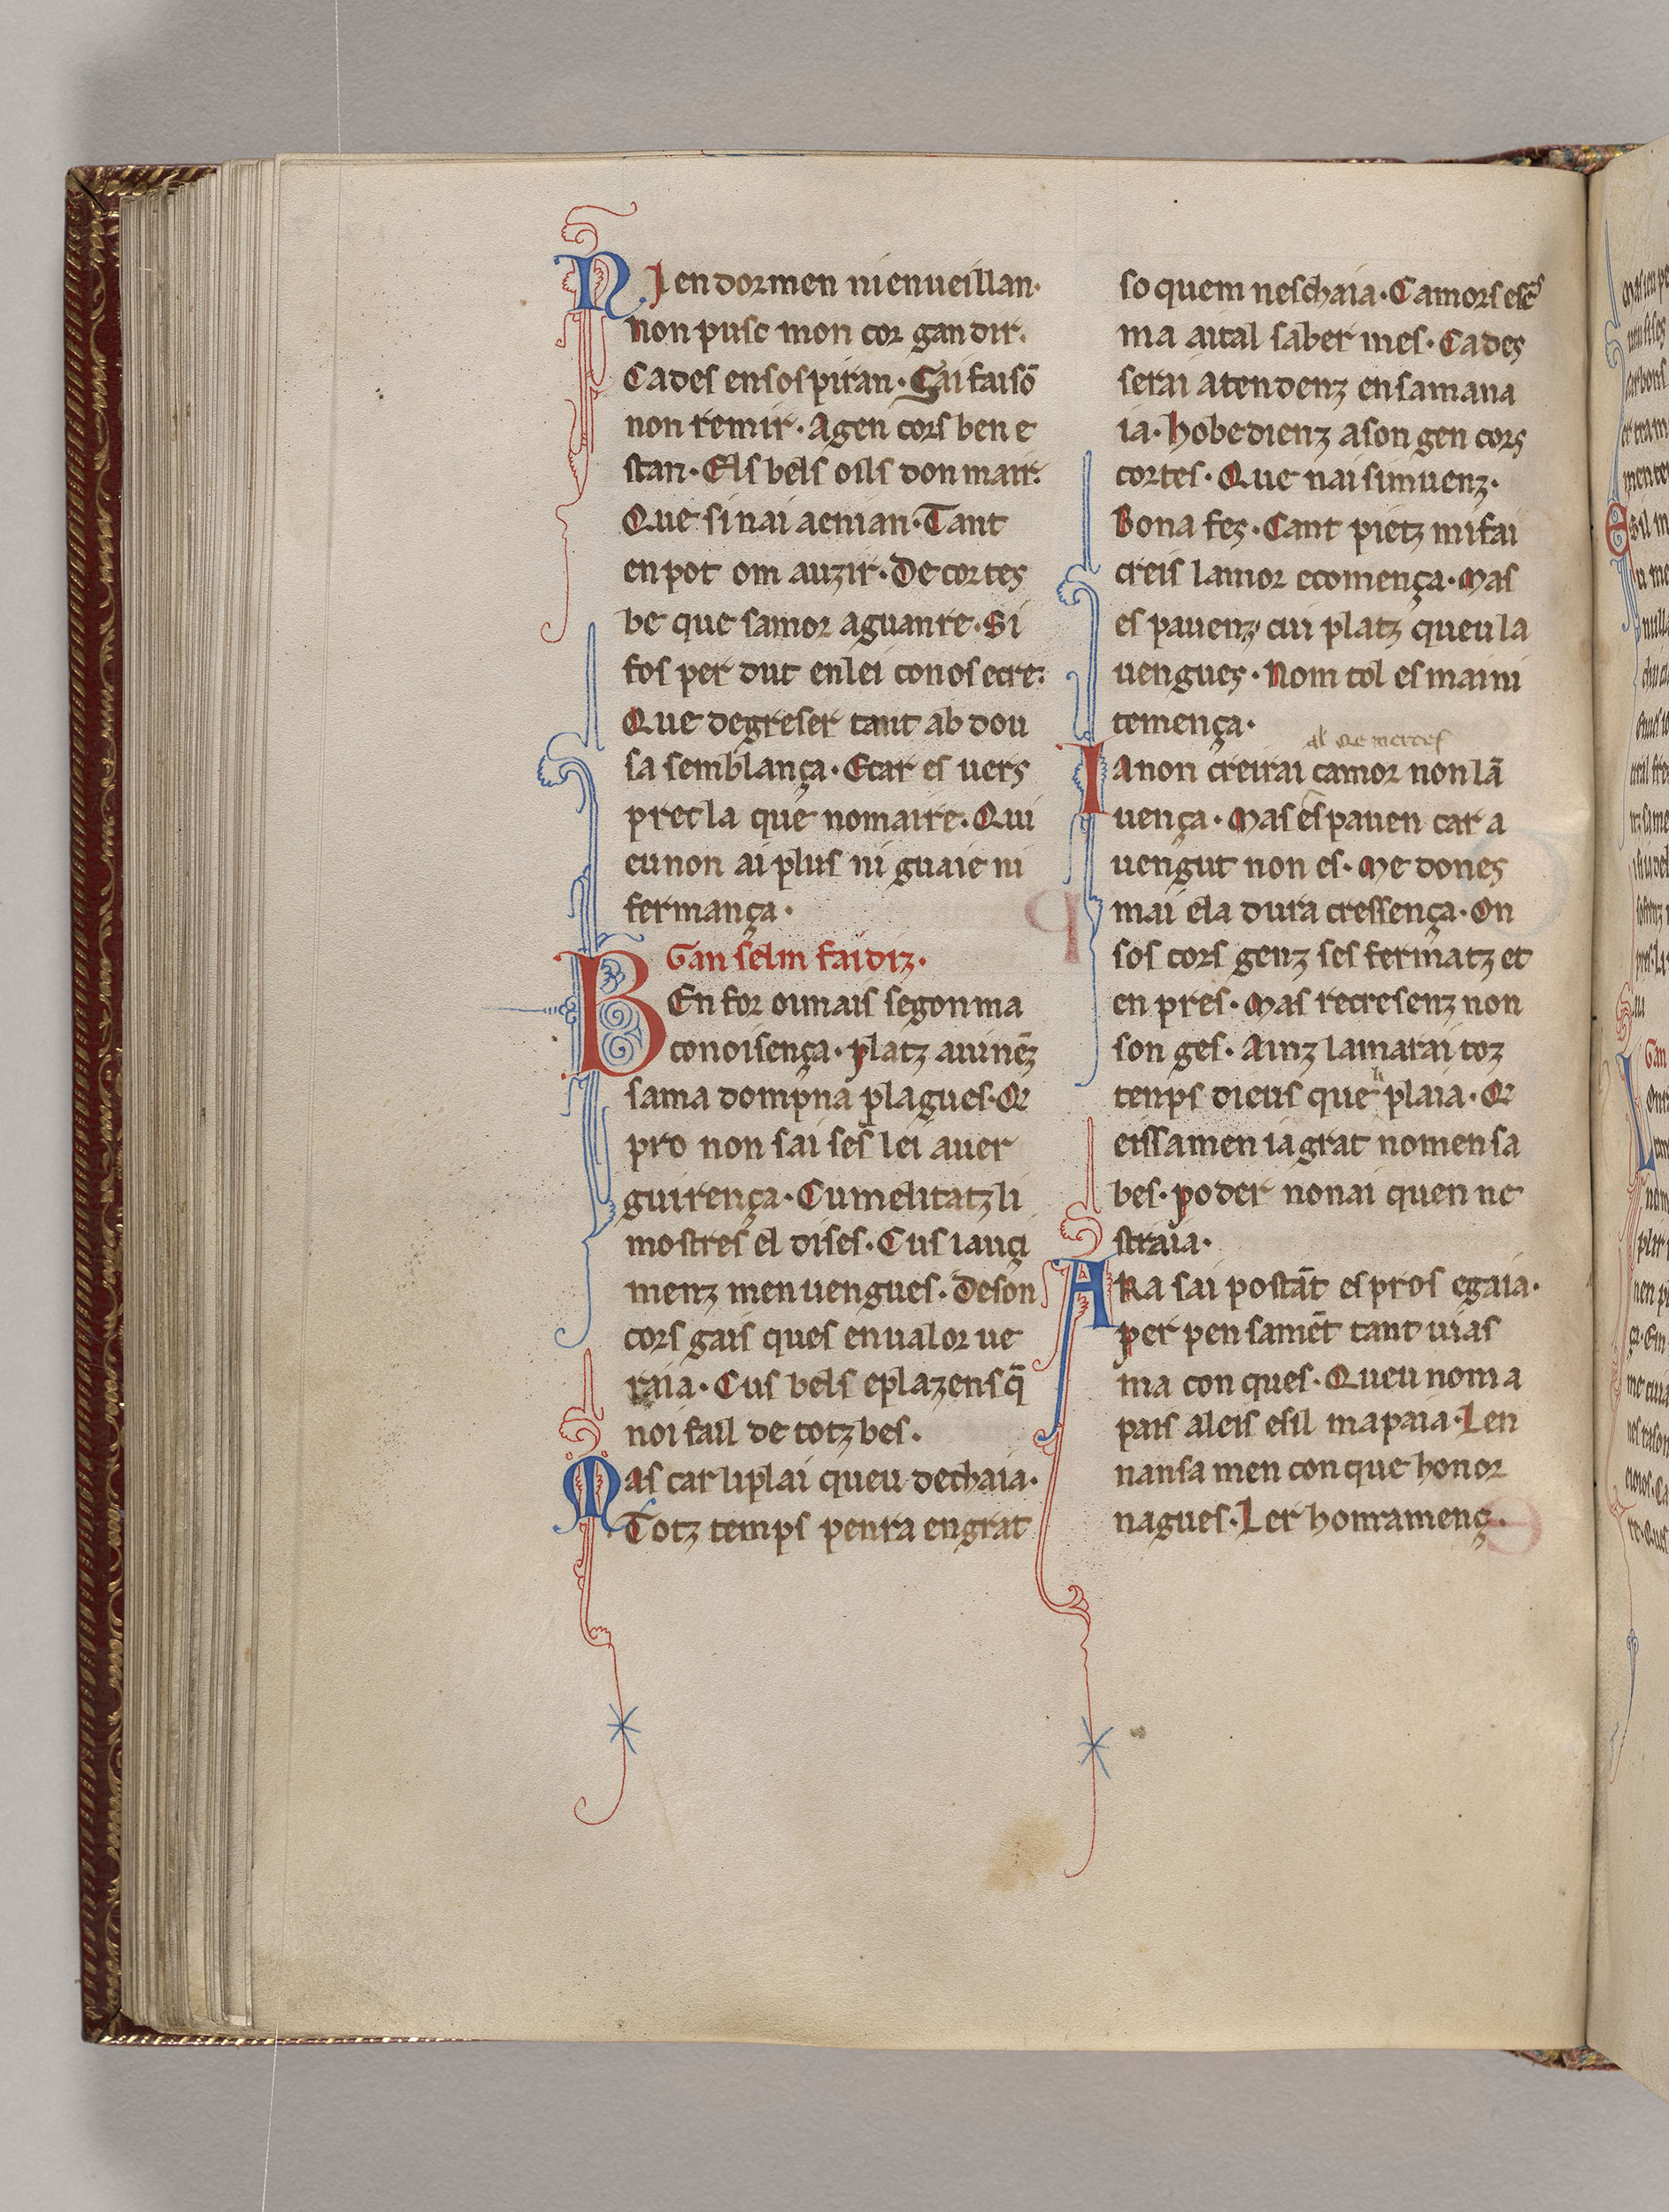 NI en dormen ni enueillan·
non pusc mon cor gandir.
Cades ensospiran· Sai faisō
non remir· Agen cors ben e
stan· Els bels oils don mair.
Que si nai aenian· Tant
enpot om auzir· De cortes
be que samor aguanre· Si
fos per dut enlei conosecre.
Que degreser tant ab dou
sa semblança· Ecar es uers
precla que nomaire· Qui
eunon ai plus ni guaie ni
fermança·
Gan selm faidiz·
BEn for oimais segon ma
conoisença· platz auinēz
sama dompna plagues· Qe
pro non sai ses lei auer
guirença· Cumelitatz li
mostres el dises· Cus iauçi
menz men uengues· Deson
cors gais ques enualor ue
raia· Cus bels eplazens q̄
noi fail de totz bes·
Mas car li plai queu dechaia·
Totz temps penra engrat
so quem neschaia· Camors esc
ma aital saber mes· Cades
serai atendenz ensamana
ia· hobedienz ason gen cors
cortes· Que nai simuenz·
Bona fez· Cant pietz mi fai
creis lamor ecomença· Mas
es pauenz cui platz queu la
uengues· Nom tol esmai ni
temença·
al qe merces
IAnon creirai camor non lā
uença· Mas espauen car a
uengut non es· Me dones
mai ela dura cressença· On
sos cors genz ses fermatz et
en pres· Mas recresenz non
son ges· Ainz lamarai toz
temps dieus que plaia· Qe
eissamen ia grat nomen sa
bes· poder nonai quen ne
straia·
ARa sai postāt es pros egaia·
per pensamēt tant uias
ma con ques· Queu nom a
pais aleis esil mapaia· Len
nansa men con que honor
nagues· Ler honramenç·